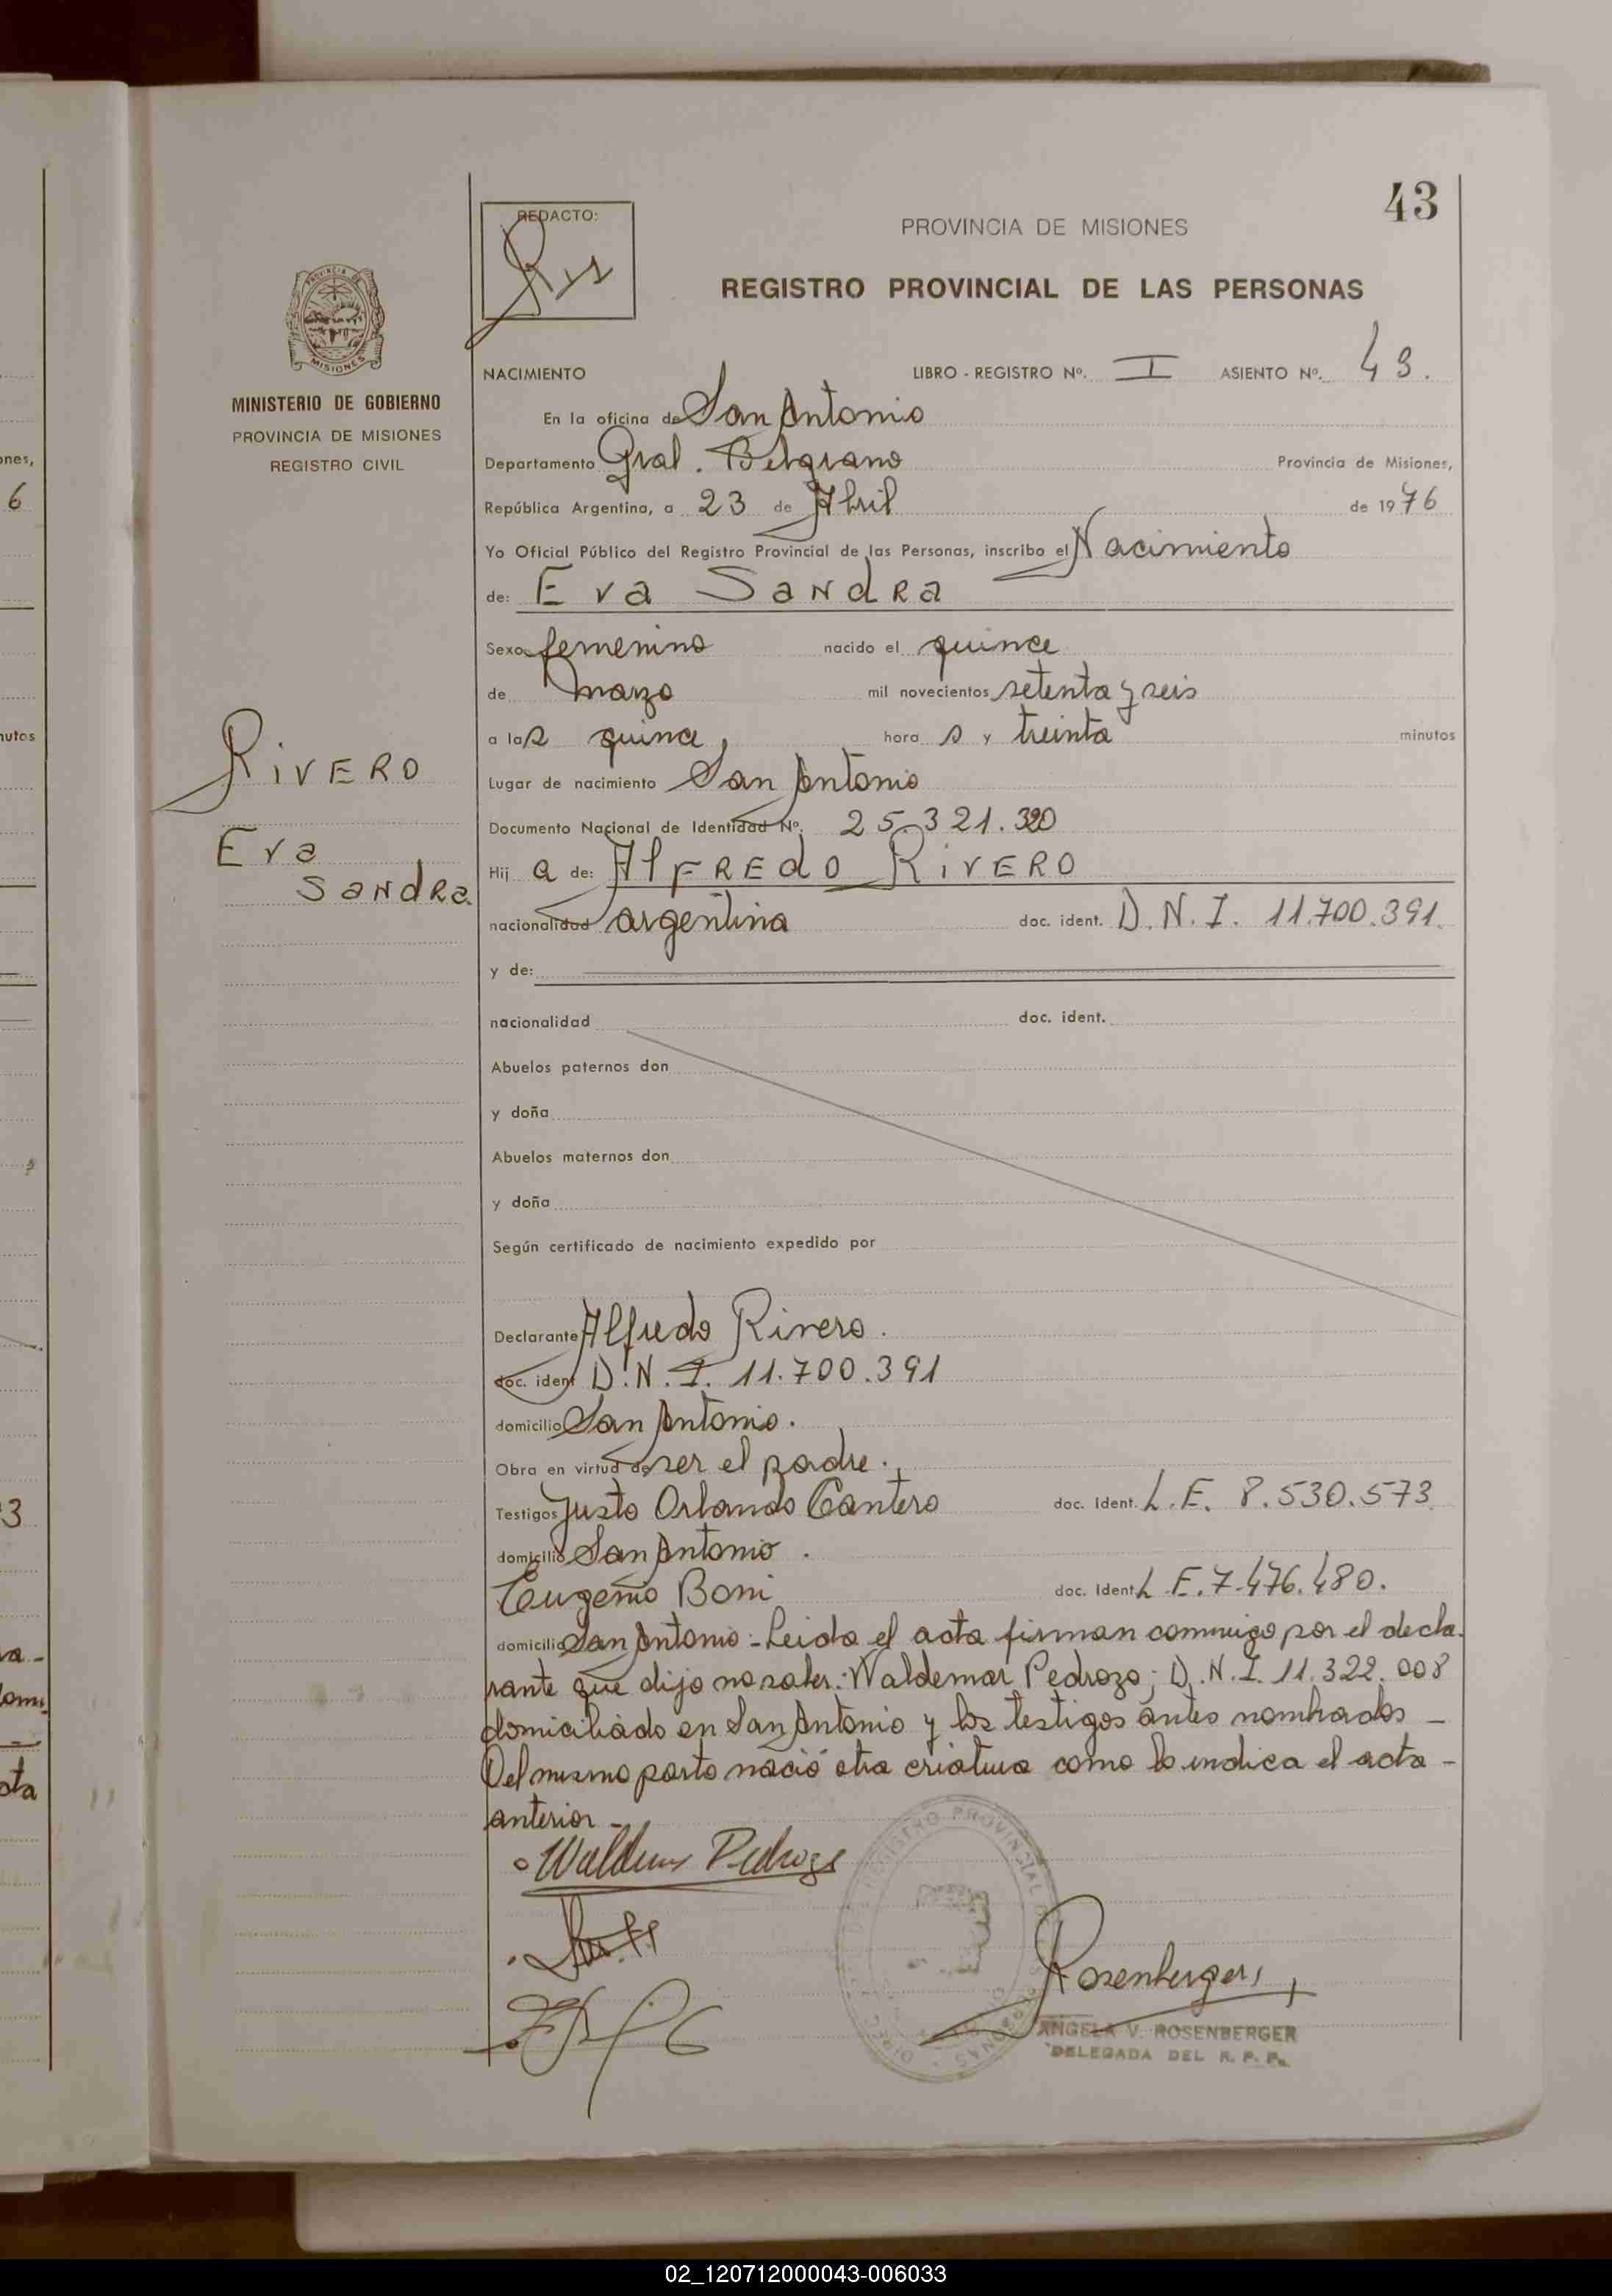 43
REDACTO:
PROVINCIA DE MISIONES
REGISTRO PROVINCIAL DE LAS PERSONAS
PROVINCIA DE
MISIONES
MINISTERIO DE GOBIERNO
PROVINCIA DE MISIONES
REGISTRO CIVIL
NACIMIENTO LIBRO - REGISTRO Nº. I ASIENTO Nº. 43.
En la oficina de San Antonio
Departamento Gral. Belgrano Provincia de Misiones,
República Argentina, a 23 de Abril de 1976
Yo Oficial Público del Registro Provincial de las Personas, inscribo el Nacimiento
de: Eva Sandra
Sexo femenino nacido el quince
de marzo mil novecientos setenta y seis
a las quince hora s y treinta minutos
Lugar de nacimiento San Antonio
Documento Nacional de Identidad Nº. 25.321.320
Hij a de: Alfredo Rivero
nacionalidad argentina doc. ident. D.N.I. 11.700.391.
y de:
nacionalidad doc. ident.
Abuelos paternos don
y doña
Abuelos maternos don
y doña
Según certificado de nacimiento expedido por
Declarante Alfredo Rivero.
doc. ident D.N.I. 11.700.391
domicilio San Antonio.
Obra en virtud de ser el padre.
Testigos Justo Orlando Cantero doc. Ident. L.E. 8.530.573
domicilio San Antonio.
Eugenio Boni doc. Ident. L.E. 7.476.480.
domicilio San Antonio - Leida el acta firman conmigo por el decla-
rante que dijo no saber: Waldemar Pedrozo; D.N.I. 11.322.008
domiciliado en San Antonio y los testigos antes nombrados -
Del mismo parto nació otra criatura como lo indica el acta -
anterior -
Waldemar Pedrozo
Rosenberger
ANGELA V. ROSENBERGER
DELEGADA DEL R. P. P.
Rivero
Eva
Sandra
ones,
6
nutos
3
ota
02_120712000043-006033